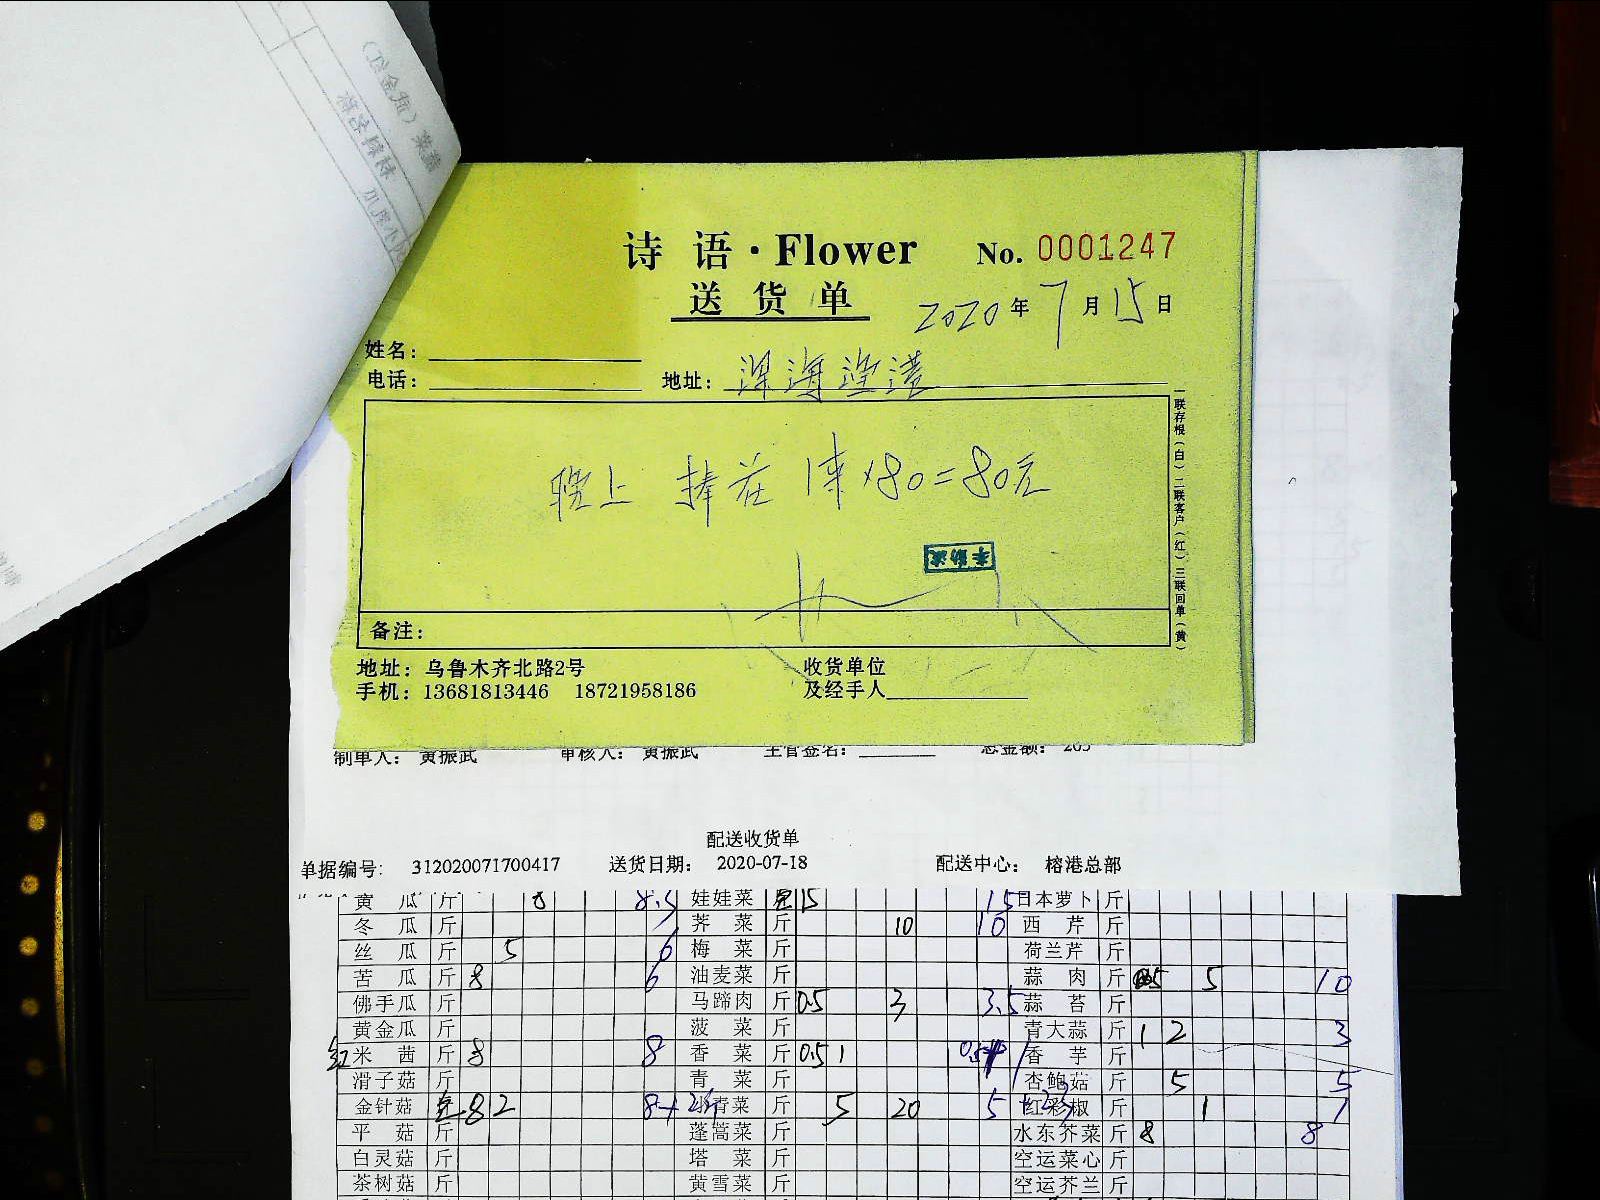 诗 语 · Flower No. 0001247
送 货 单 2020年7月15日
姓名：
电话： 地址：深海渔港
晚上 捧花 1束×80=80元
李勤波
备注：
一联存根（白）二联客户（红）三联回单（黄）
地址：乌鲁木齐北路2号 收货单位
手机：13681813446 18721958186 及经手人
制单人：黄振武 审核人：黄振武 主管签名： 总金额：205
配送收货单
单据编号: 312020071700417 送货日期： 2020-07-18 配送中心： 榕港总部
黄 瓜 斤 8 8.5 娃娃菜 15 15 日本萝卜 斤
冬 瓜 斤 荠 菜 斤 10 10 西 芹 斤
丝 瓜 斤 5 6 梅 菜 斤 荷兰芹 斤
苦 瓜 斤 8 6 油麦菜 斤 蒜 肉 斤 5 10
佛手瓜 斤 马蹄肉 斤 0.5 3 3.5 蒜 苔 斤
黄金瓜 斤 菠 菜 斤 青大蒜 斤 1 2 3
红米 茜 斤 8 8 香 菜 斤 0.5 1 香 芋 斤
滑子菇 斤 青 菜 斤 杏鲍菇 斤 5 5
金针菇 8 2 8+2 小青菜 斤 5 20 5 红彩椒 斤 1 1
平 菇 斤 蓬蒿菜 斤 水东芥菜 斤 8 8
白灵菇 斤 塔 菜 斤 空运菜心 斤
茶树菇 斤 黄雪菜 斤 空运芥兰 斤